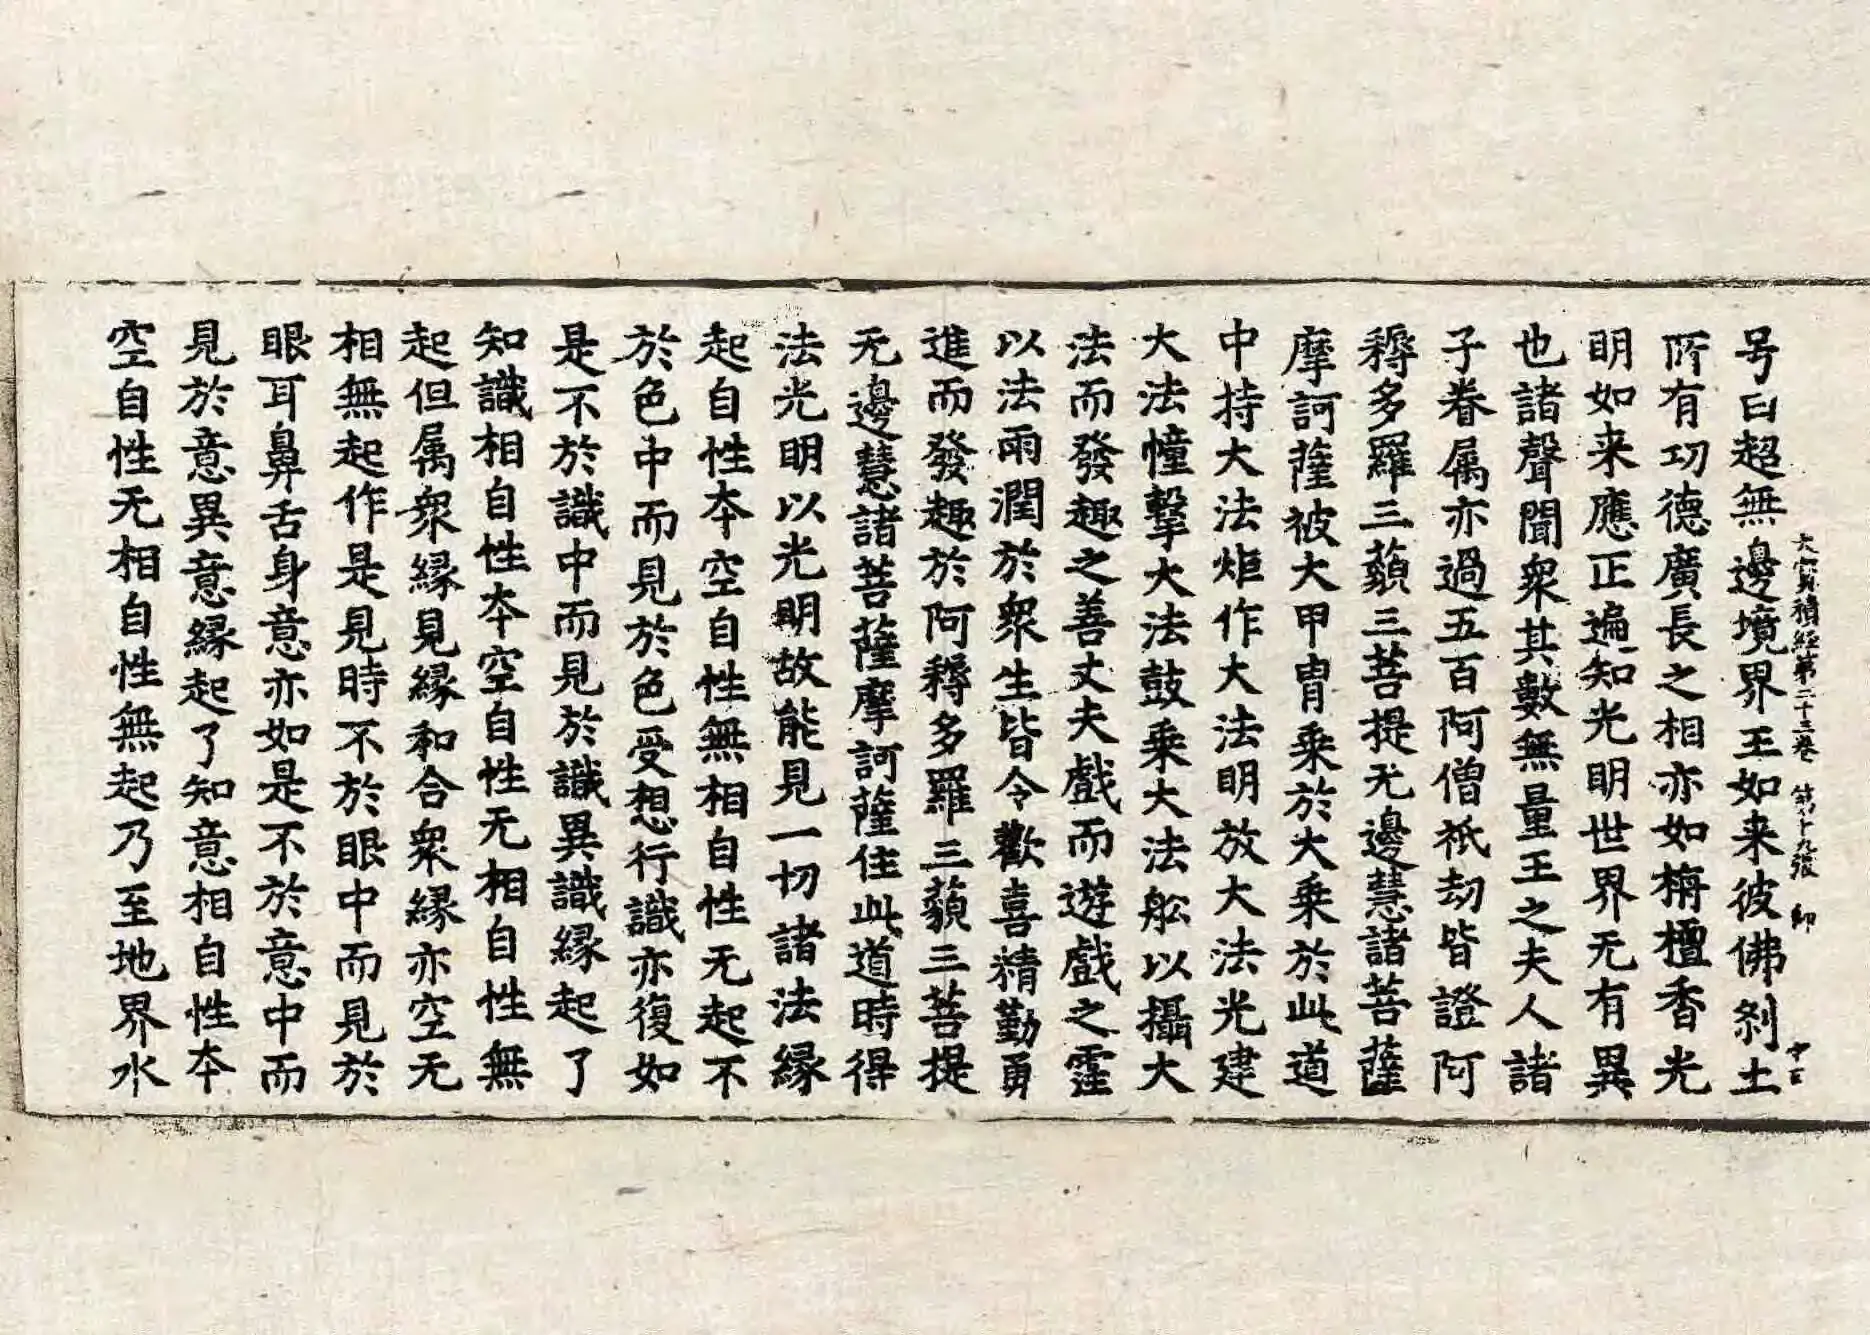 大寶積經第二十三卷 第十九張 印
号曰超無邊境界王如来彼佛刹土
所有功德廣長之相亦如栴檀香光
明如来應正遍知光明世界无有異
也諸聲聞衆其數無量王之夫人諸
子眷属亦過五百阿僧祇劫皆證阿
耨多羅三藐三菩提无邊慧諸菩薩
摩訶薩被大甲冑乘於大乘於此道
中持大法炬作大法明放大法光建
大法幢擊大法鼓乘大法舩以攝大
法而發趣之善丈夫戲而遊戲之霔
以法雨潤於衆生皆令歡喜精勤勇
進而發趣於阿耨多羅三藐三菩提
无邊慧諸菩薩摩訶薩住此道時得
法光明以光明故能見一切諸法緣
起自性本空自性無相自性无起不
於色中而見於色受想行識亦復如
是不於識中而見於識異識緣起了
知識相自性本空自性无相自性無
起但属衆緣見緣和合衆緣亦空无
相無起作是見時不於眼中而見於
眼耳鼻舌身意亦如是不於意中而
見於意異意緣起了知意相自性本
空自性无相自性無起乃至地界水